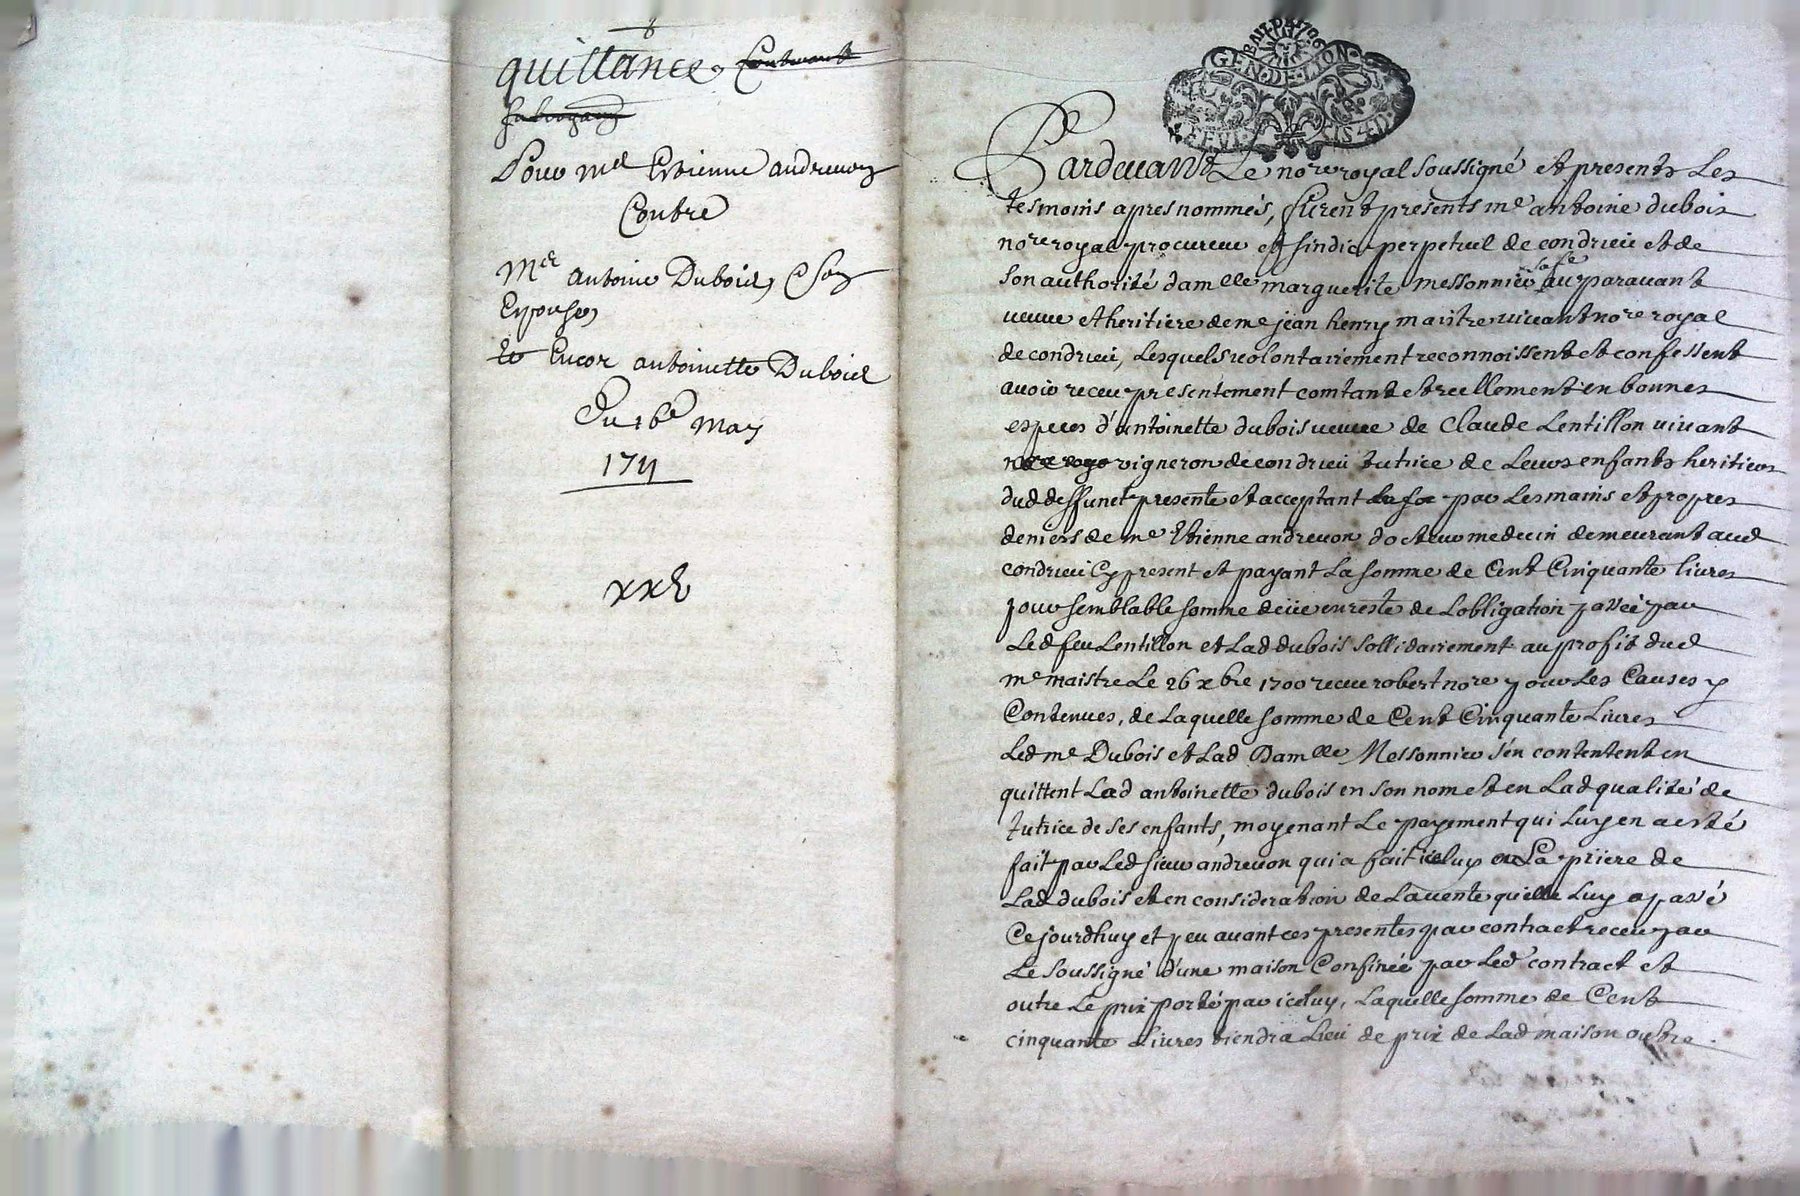 quittance, contenant
subrogaõn
Pour Me Estienne andrevon
Contre
Me antoine Dubois, & son
Espouse,
et Encor antoinette Dubois
Du 16e May
1711
xx ₶
BAIL DE 1706
GEN·DE·LION
FEUIL
IS 4 D
Pardevant Le nore royal soussigné et presents Les
tesmoins apres nommés, furent presents me antoine dubois
nore royal procureur et sindic perpetuel de condrieu et de
sa fe
son authorité damelle marguerite messonnier auparavant
veuve et heritiere de me jean henry maistre vivant nore royal
de condrieu, Lesquels volontairement reconnoissent et confessent
avoir receu presentement comtant et reellement en bonnes
especes d'antoinette dubois veuve de Claude Lentillon vivant
nore roya vigneron de condrieu tutrice de Leurs enfants heritiers
dud deffunct presente et acceptant par Les mains et propres
deniers de me Etienne andrevon docteur medecin demeurant aud
condrieu Cy present et payant La somme de Cent Cinquante livres
pour semblable somme deüe en reste de Lobligation passée par
Led feu Lentillon et Lad dubois sollidairement au profit dud
me maistre Le 26 xbre 1700 receue robert nore pour Les Causes y
Contenues, de Laquelle somme de Cent Cinquante Livres
Led me Dubois et Lad Damelle Messonnier s'en contentent en
quittent Lad antoinette dubois en son nom et en Lad qualité de
tutrice de ses enfants, moyenant Le payement qui Luy en a esté
fait par Led sieur andrevon qui a fait iceluy a La priere de
Lad dubois et en consideration de La vente quelle Luy a passé
Cejourdhuy et peu avant ces presentes par contract receu par
Le soussigné d'une maison Confinée par Led contract et
outre Le prix porté par iceluy, Laquelle somme de Cent
cinquante Livres tiendra Lieu de prix de Lad maison outre